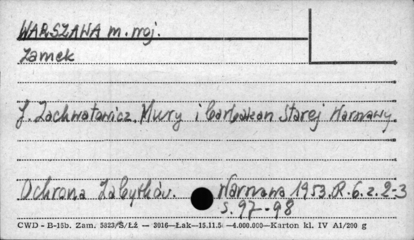 WARSZAWA m. woj.
Zamek
J. Zachwatowicz. Mury i barbakan Starej Warszawy
Ochrona Zabytków. Warszawa 1953. R. 6. z. 2-3
s. 97-98
CWD - B-15b. Zam. 5823/S/Łź — 2016—Łak—15.11.5 —4.000.000—Karton kl. IV A1/200 g